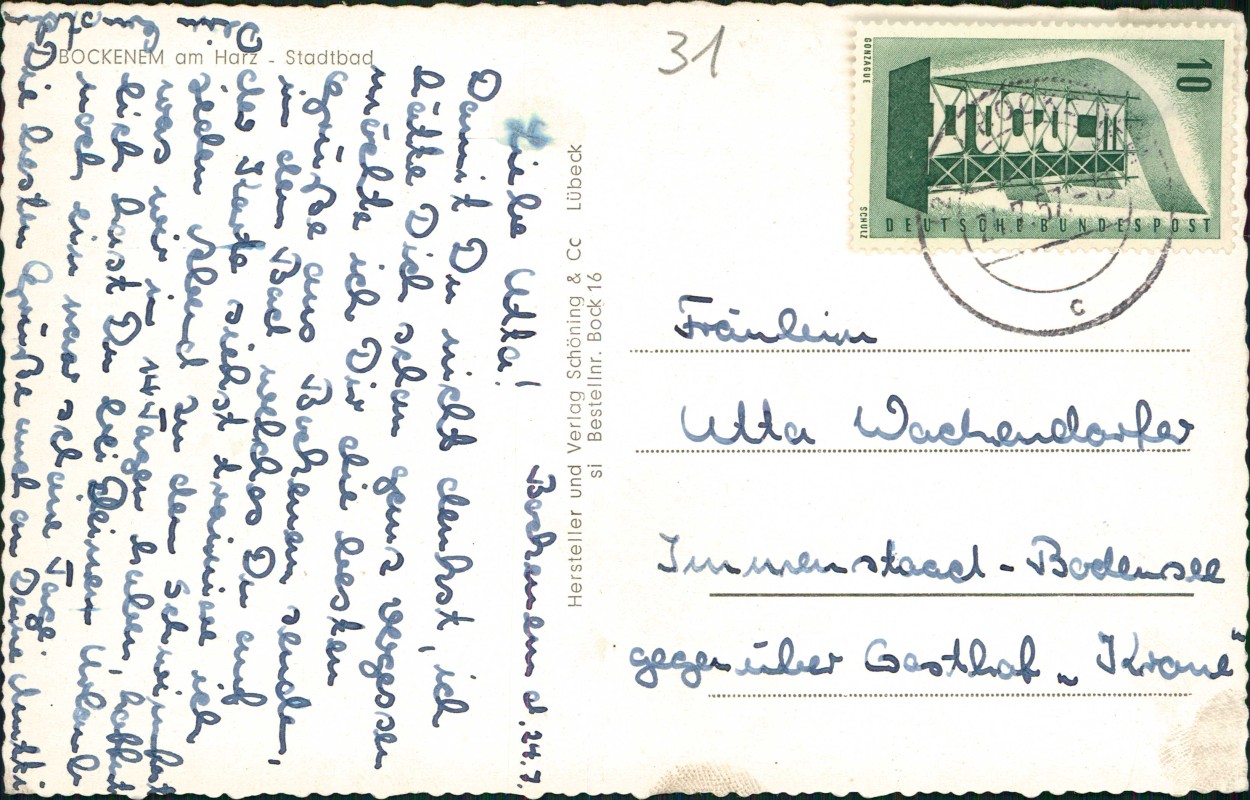 BOCKENEM am Harz - Stadtbad
Bockenem d. 24.7.
Liebe Utta!
Damit Du nicht denkst, ich
hätte Dich schon ganz vergessen
möchte ich Dir die besten
Grüße aus Bockenem senden,
in dem Bad welches Du auf
der Karte siehst trainiere ich
jeden Abend zu dem Schwimmfest
was wir in 14 Tagen haben, hoffent
lich hast Du bei Deinem Urlaub
noch ein paar schöne Tage.
Die besten Grüße und an Deine
Hersteller und Verlag Schöning & Co Lübeck
si Bestellnr. Bock 16
31
10
GONZAGUE
SCHULZ
DEUTSCHE BUNDESPOST
24.7.57.
c
Fräulein
Utta Wachendorfer
Immenstaad - Bodensee
gegenüber Gasthof „Krone"